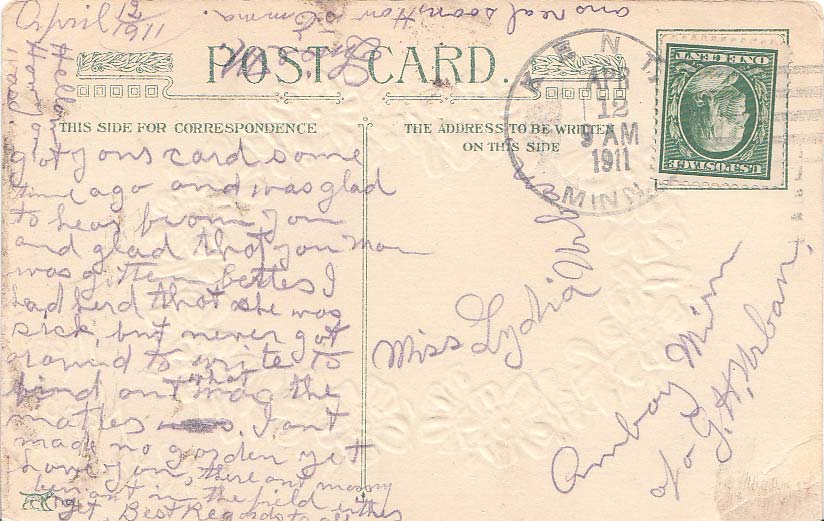 April 12
1911
Hello
and real soon. How is Emma.
POST CARD.
THIS SIDE FOR CORRESPONDENCE
THE ADDRESS TO BE WRITTEN
ON THIS SIDE
KENT,
APR
12
9 AM
1911
MINN.
U.S. POSTAGE
ONE CENT
got yours card some
time ago and was glad
to hear from you
and glad that you Mom
was gitten better I
had herd that she was
sick, but never got
around to write to
find out what was the
matter. I ant
made no gorden yet
have you, there ant many
ben out in the field
yet. Best Regards to all
Miss Lydia Urban
Amboy Minn
c/o G. H. Urban,